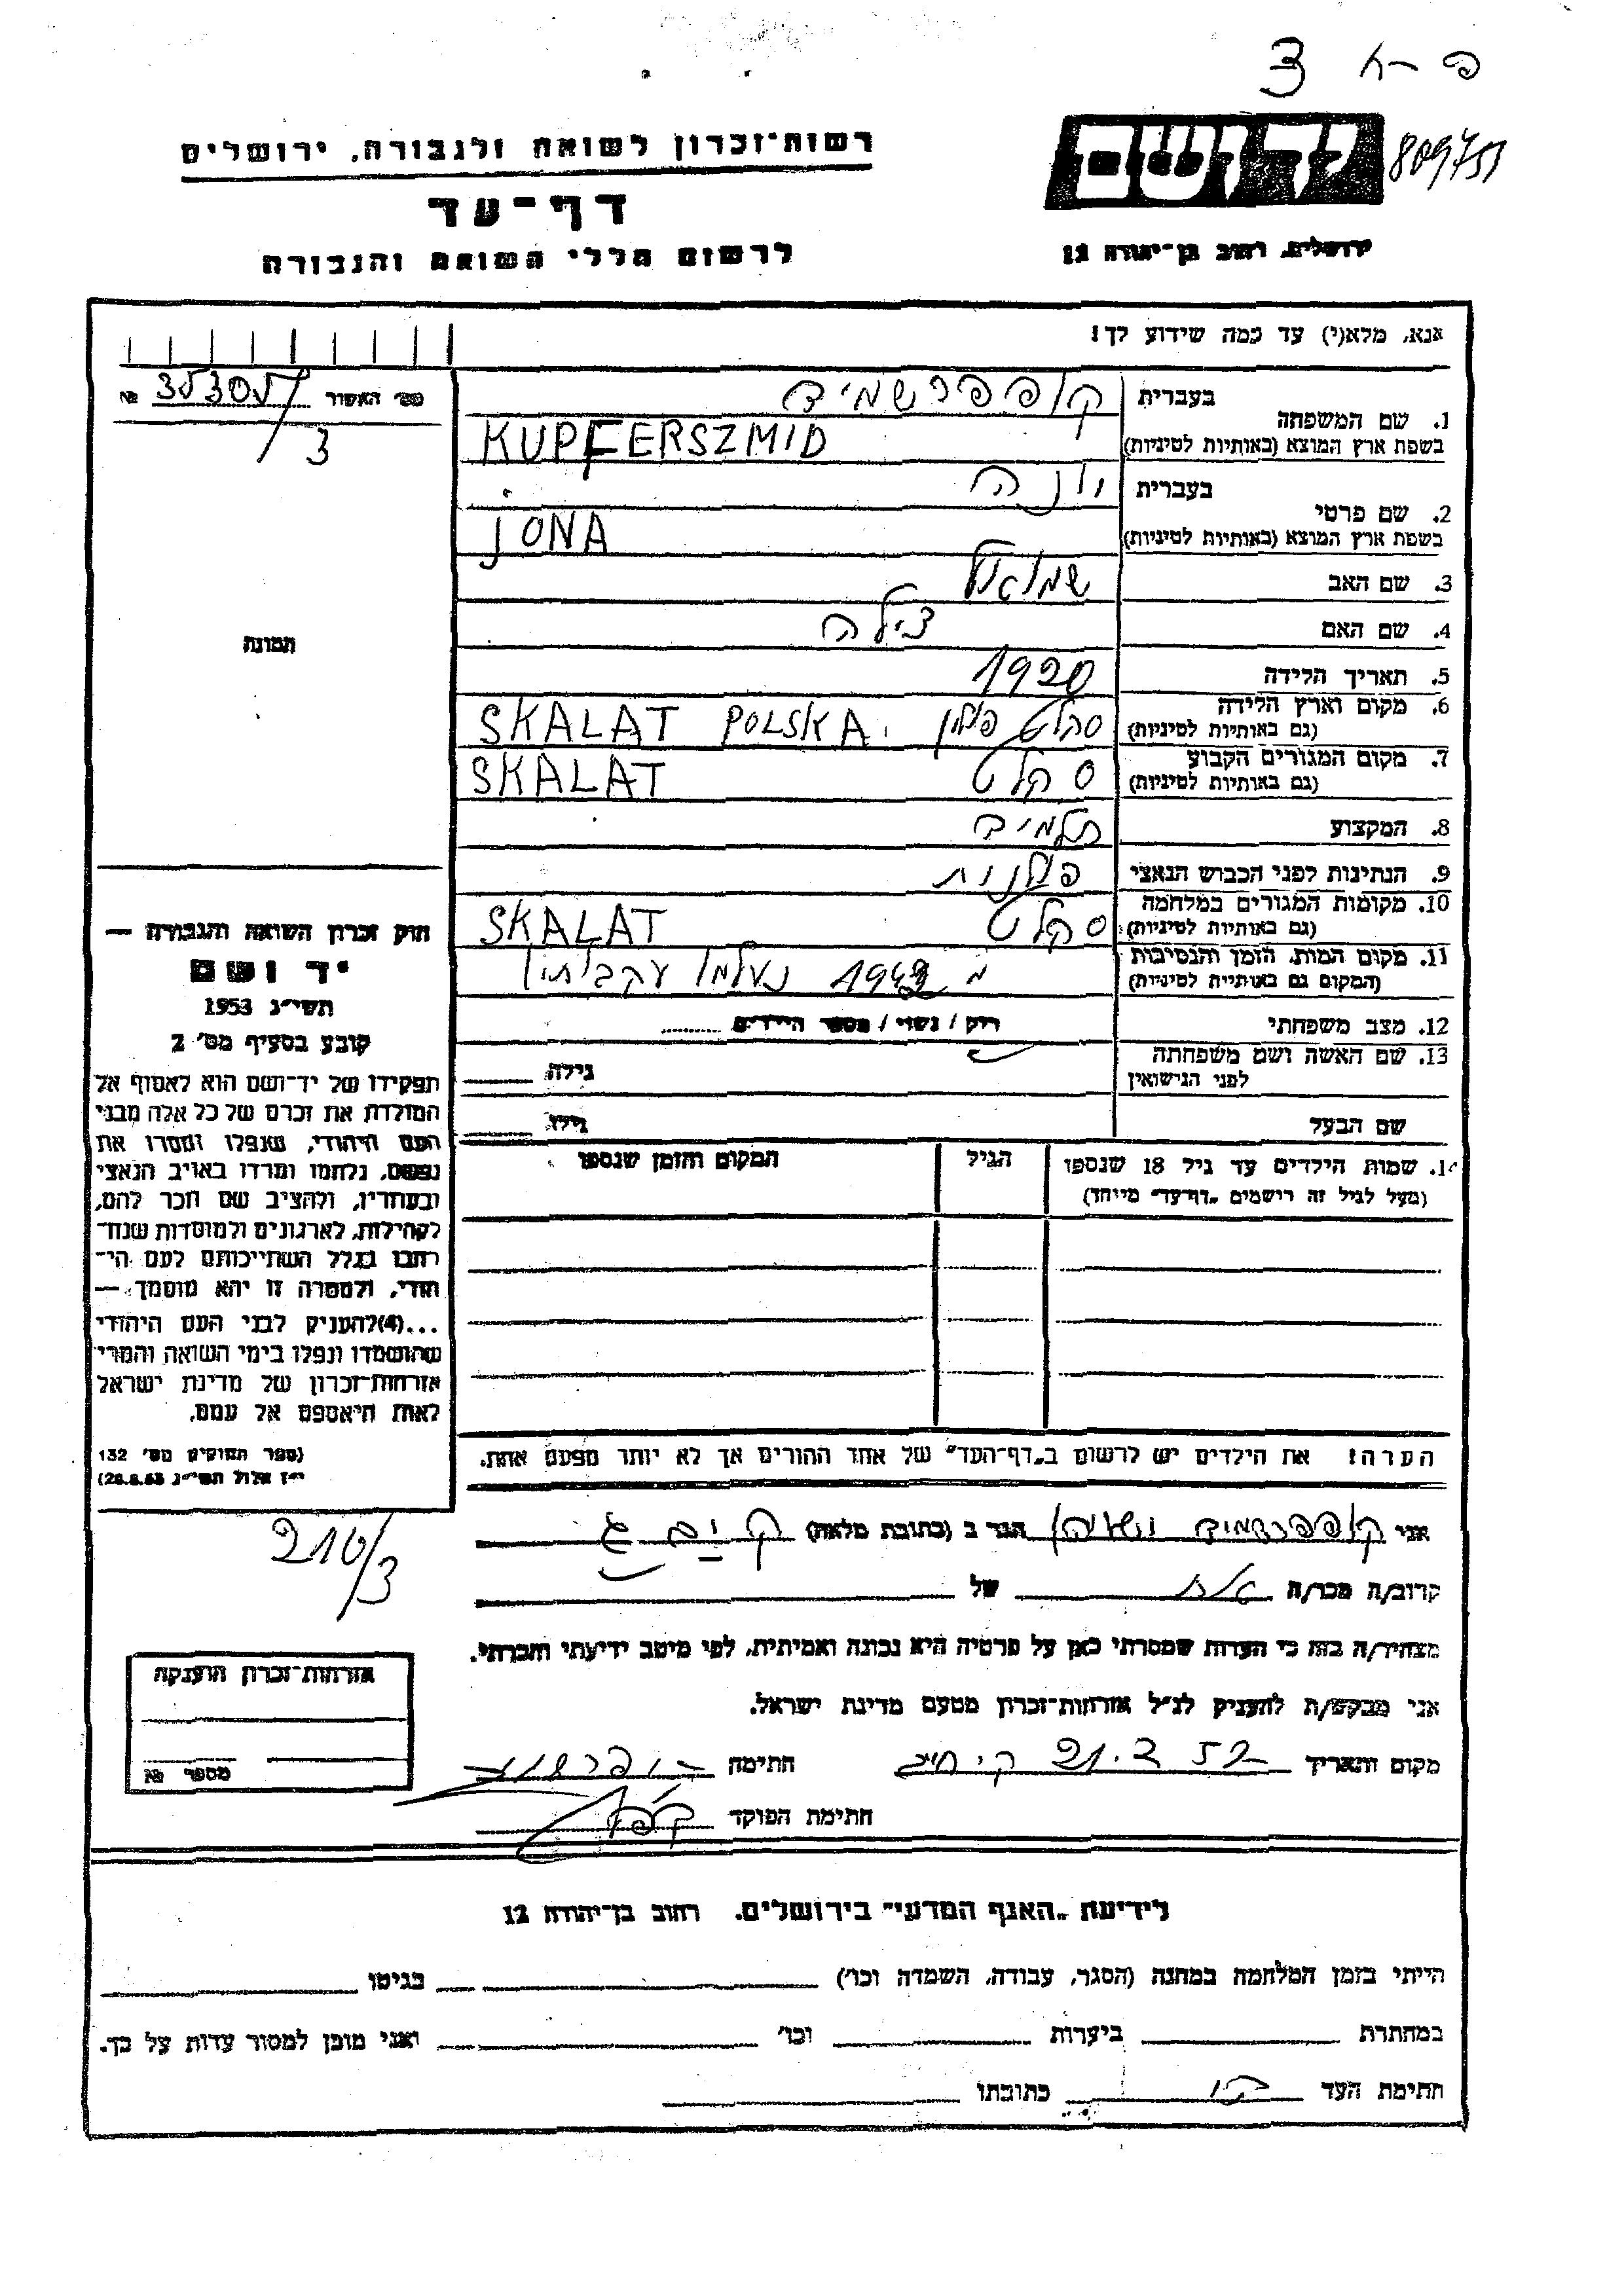 פ-א 3
רשות-זכרון לשואה ולגבורה, ירושלים
יד ושם
809751
דף-עד
ירושלים, רחוב בן-יהודה 12
לרשום חללי השואה והגבורה
אנא, מלא(י) עד כמה שידוע לך!
מס׳ האשור № 353057/3
1. שם המשפחה בעברית קופפרשמיד
בשפת ארץ המוצא (באותיות לטיניות) KUPFERSZMID
2. שם פרטי בעברית יונה
בשפת ארץ המוצא (באותיות לטיניות) JONA
3. שם האב שמואל
4. שם האם צילה
תמונה
5. תאריך הלידה 1920
6. מקום וארץ הלידה (גם באותיות לטיניות) סקלט פולין SKALAT POLSKA
7. מקום המגורים הקבוע (גם באותיות לטיניות) סקלט SKALAT
8. המקצוע תלמיד
9. הנתינות לפני הכבוש הנאצי פולנית
10. מקומות המגורים במלחמה (גם באותיות לטיניות) סקלט SKALAT
11. מקום המות, הזמן והנסיבות (המקום גם באותיות לטיניות) נעלמו עקבותיו
12. מצב משפחתי רווק / נשוי / מספר הילדים
13. שם האשה ושם משפחתה לפני הנישואין גילה
שם הבעל גילו
14. שמות הילדים עד גיל 18 שנספו הגיל המקום והזמן שנספו
(מעל לגיל זה רישמים „דף-עד״ מייוחד)
הערה! את הילדים יש לרשום ב„דף-העד״ של אחד ההורים אך לא יותר מפעם אחת.
חוק זכרון השואה והגבורה —
יד ושם
תשי״ג 1953
קובע בסעיף מס׳ 2
תפקידו של יד-ושם הוא לאסוף אל
המולדת את זכרם של כל אלה מבני
העם היהודי, שנפלו ומסרו את
נפשם, נלחמו ומרדו באויב הנאצי
ובעוזריו, ולהציב שם וזכר להם,
לקהילות, לארגונים ולמוסדות שנח־
רבו בגלל השתייכותם לעם הי־
הודי, ולמטרה זו יהא מוסמך —
...(4)להעניק לבני העם היהודי
שהושמדו ונפלו בימי השואה והמרי
אזרחות-זכרון של מדינת ישראל
לאות היאספם אל עמם.
(ספר החוקים מס׳ 132
י״ז אלול תשי״ג 28.8.53)
210/3
אני קופפרשמיד הגר ב (כתובת מלאה) ק. ים ג
קרוב/ה מכר/ה אח של
מצהיר/ה בזה כי העדות שמסרתי כאן על פרטיה היא נכונה ואמיתית, לפי מיטב ידיעתי והכרתי.
אני מבקש/ת להעניק לנ״ל אזרחות-זכרון מטעם מדינת ישראל.
מקום ותאריך חתימה
חתימת הפוקד
אזרחות-זכרון הוענקה
מספר №
לידיעת „האגף המדעי״ בירושלים, רחוב בן-יהודה 12
הייתי בזמן המלחמה במחנה (הסגר, עבודה, השמדה וכו׳) בגיטו
במחתרת ביערות וכו׳ ואני מוכן למסור עדות על כך.
חתימת העד כתובתו